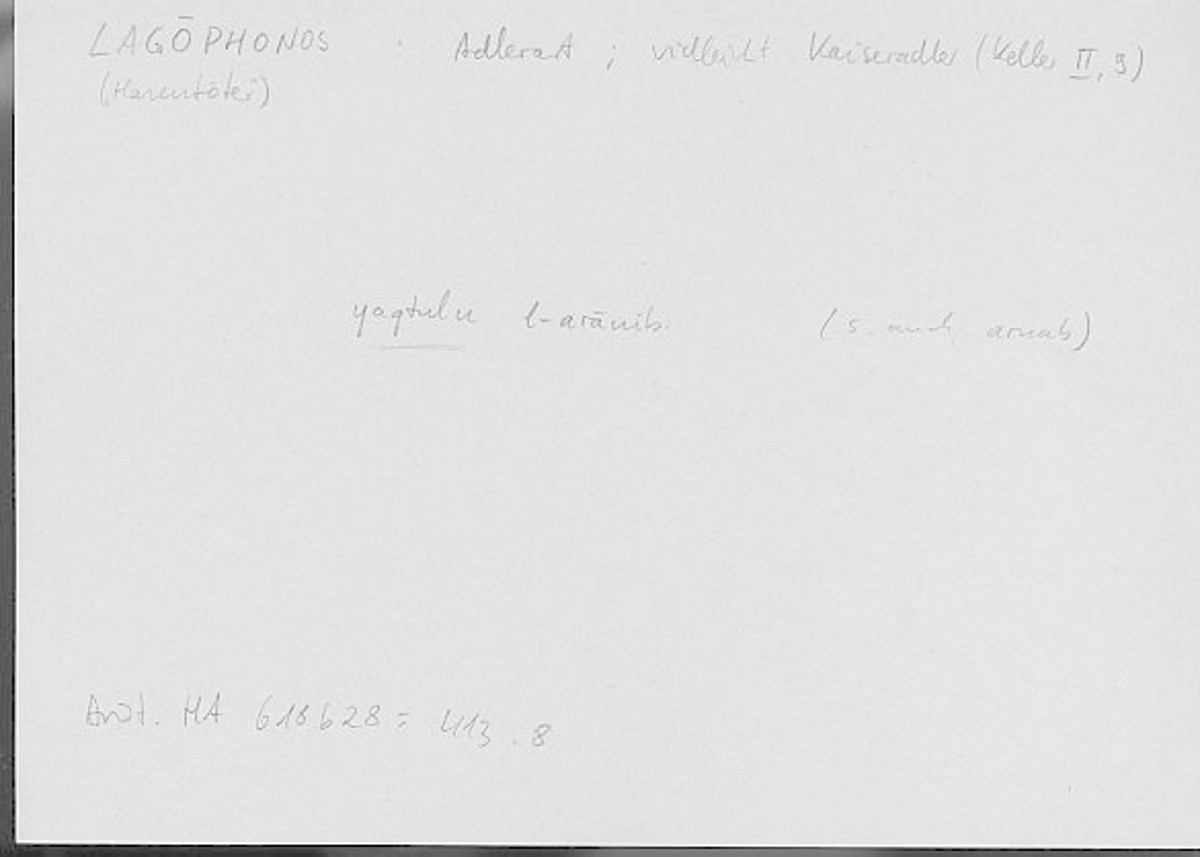 LAGŌPHONOS : Adlerart ; vielleicht Kaiseradler (Keller II, 9)
(Hasentöter)
yaqtulu l-arānib. (s. auch arnab)
Arist. HA 618b28 = 413.8